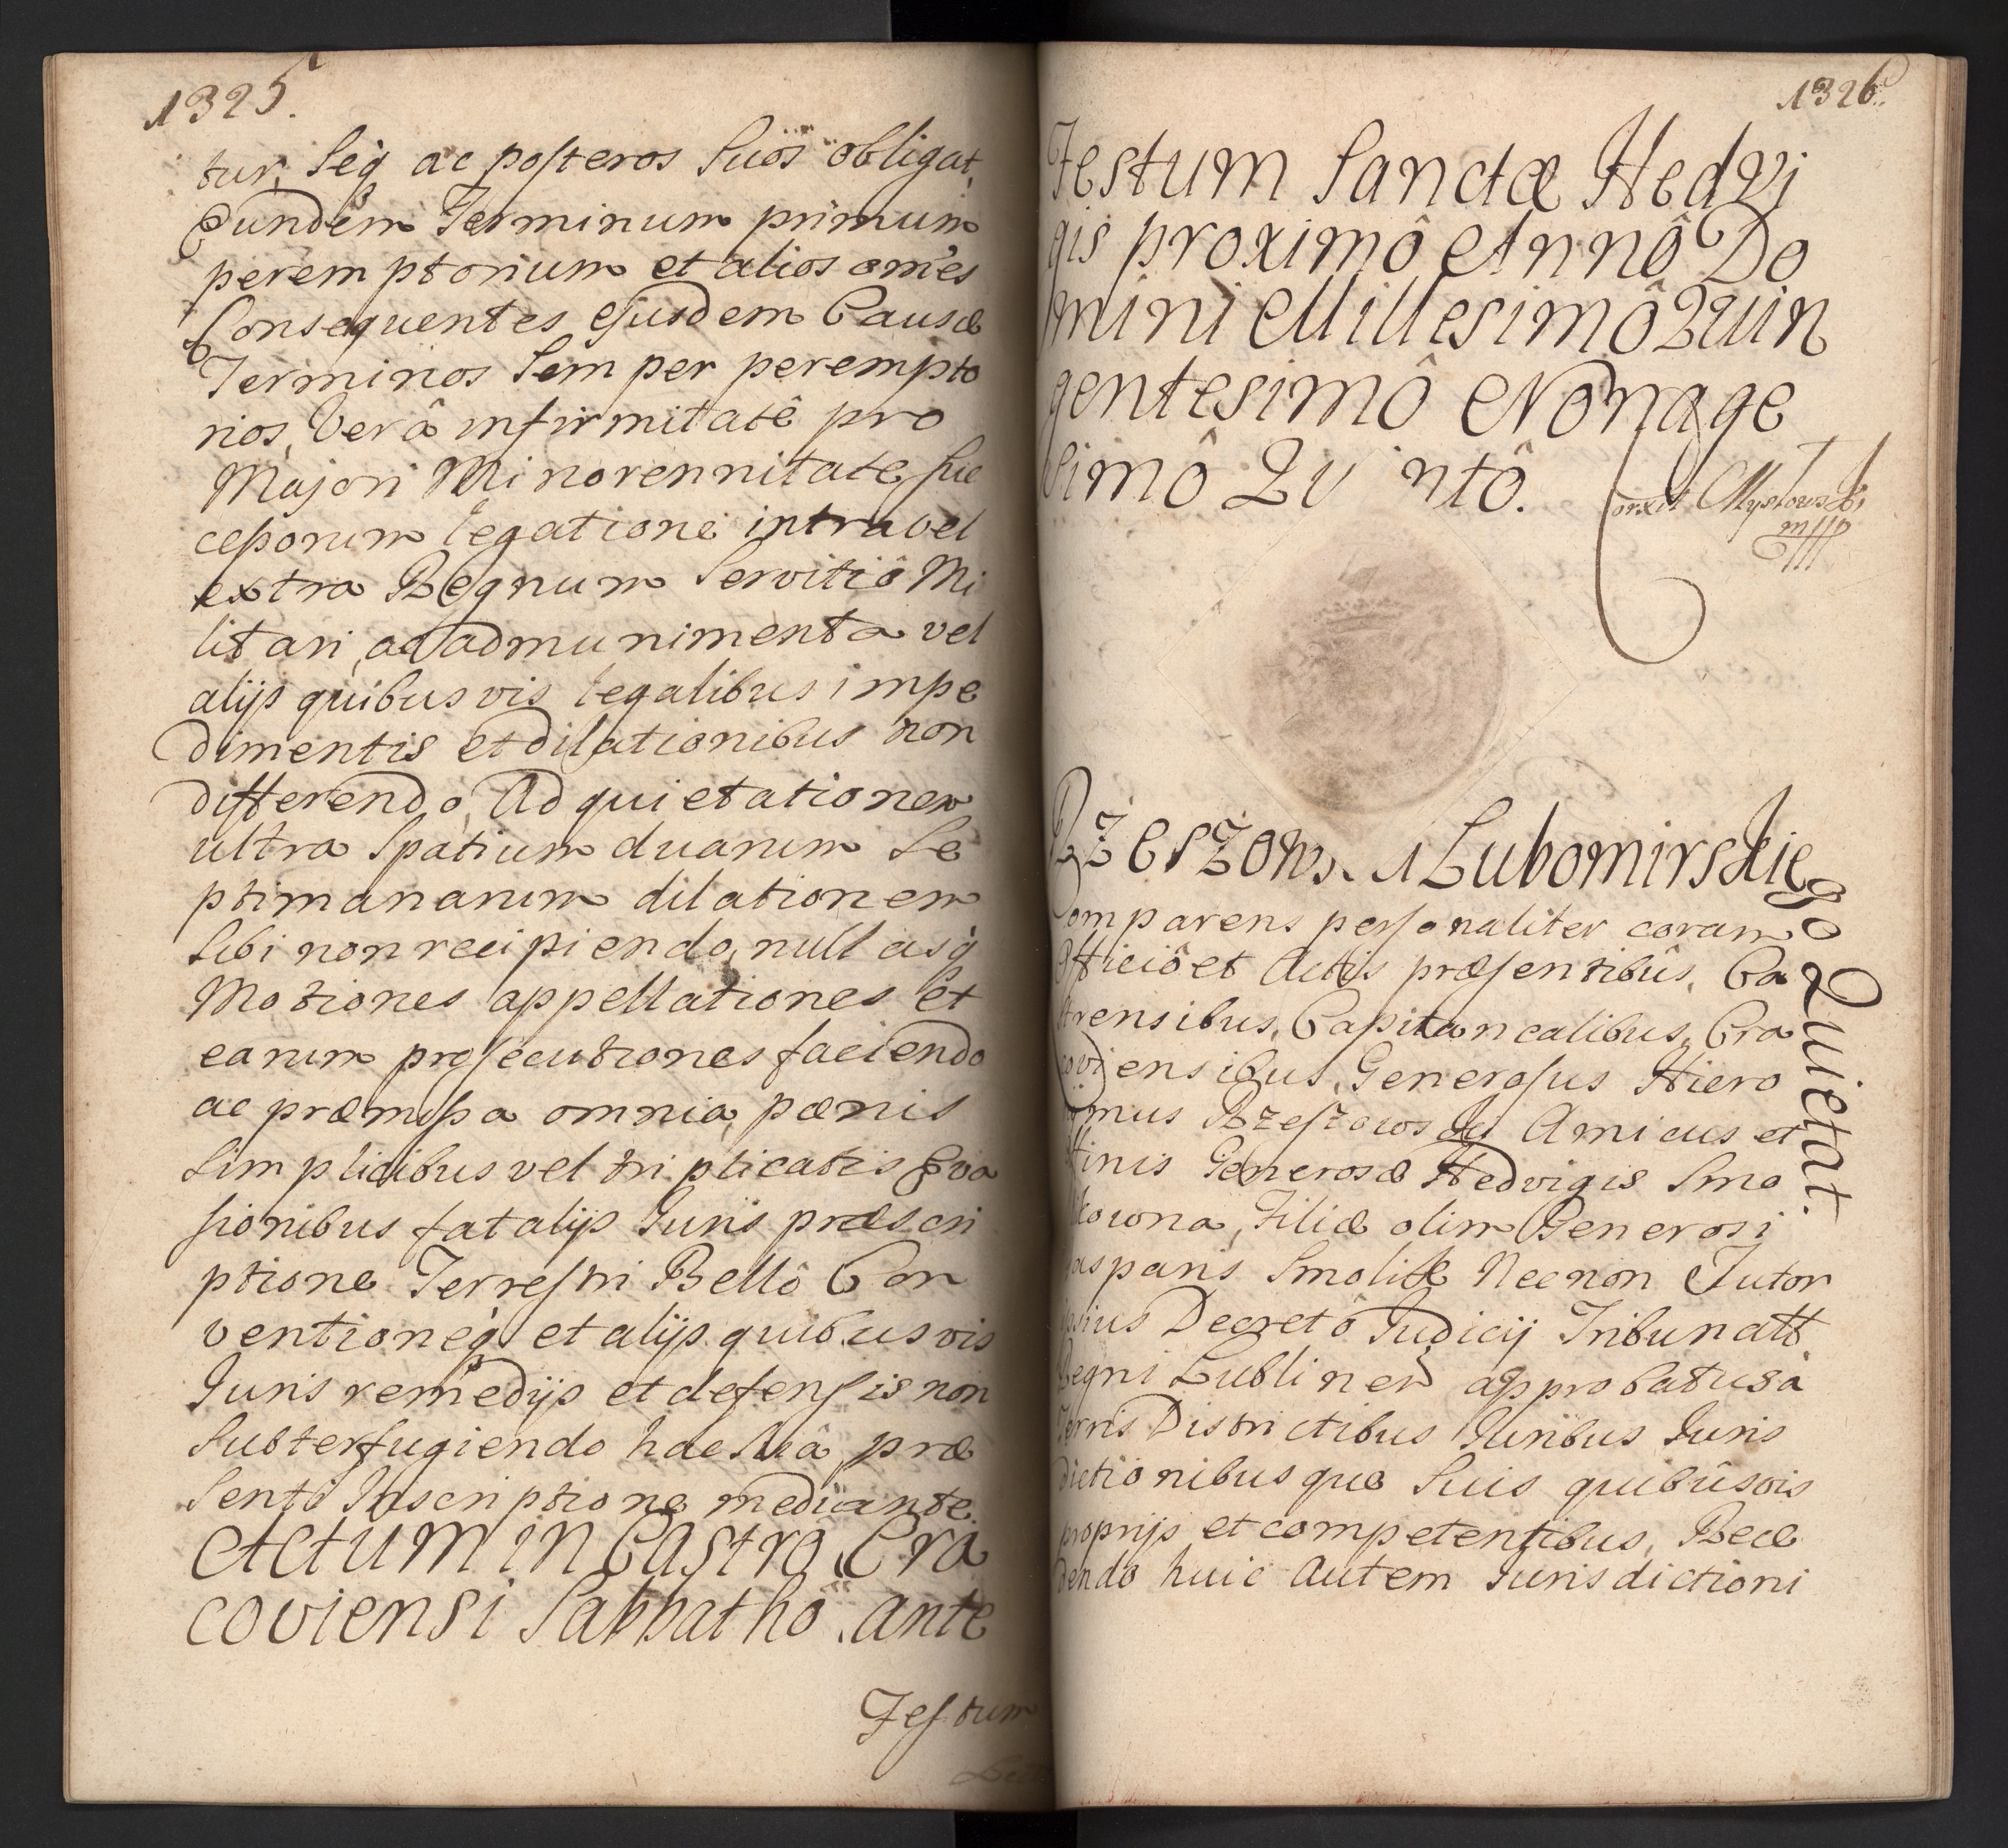 1325.
tur, Seq̃ ac posteros Suos obligat,
Eundem Terminum primum
peremptorium et alios om̃es
Consequentes ejusdem Causæ
Terminos Semper perempto
rios, Verâ infirmitatê pro
Majori Minorennitate, sus
ceporum legatione intra vel
extra Regnum Servitiô Mi
litari, ac admunimenta vel
alijs quibusvis legalibus impe
dimentis et dilationibus non
differendo, Ad quietationem
ultra Spatium duarum Se
ptimanarum dilationem
Sibi non recipiendo, nullasq̃
Motiones appellationes et
earum prosecutiones faciendo
ac præmissa omnia, pœnis
Simplicibus vel triplicatis Eva
sionibus fatalijs Juris præscri
ptione Terrestri Bellô Con
ventioneq̃ et alijs quibusvis
Juris remedijs et defensis non
Subterfugiendo hac Suâ præ
Senti Inscriptione mediante.
Actum in Castrô Cra
coviensi Sabbathô ante
Festum
1326.
Festum Sanctæ Hedvi
gis proximô Annô Do
mini Millesimô Quin
gentesimô Nonage
simô Quintô.
Rzeszows. Lubomirskiego Quietat.
Comparens personaliter coram
Officiô et Actis præsentibûs, Ca
strensibus, Capitanealibus, Cra
coviensibus, Generosus Hiero
nimus Rzeszowsky Amicus et
ffinis Generosæ Hedvigis Smo
likowna, Filiæ olim Generosi
Gasparis Smolik Necnon Tutor
ipsius Decretô Judicij Tribunatt
Regni Lublinen approbatus à
Terris Districtibus Juribus Juris
dictionibusque Suis quibûsvis
proprijs et competentibus, Rece
dendo huic autem Jurisdictioni